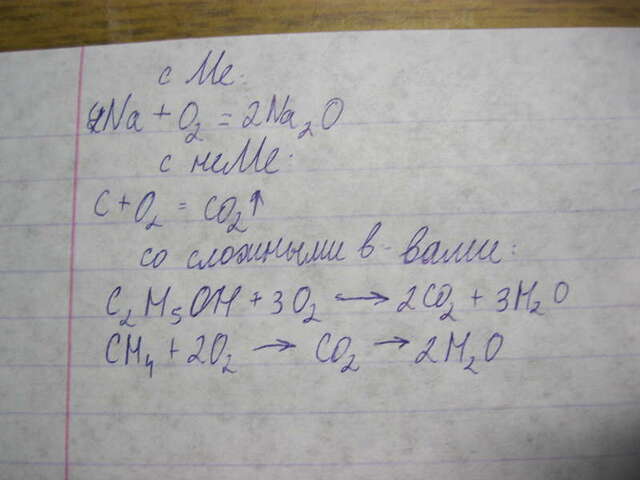 с Ме.
4Na + O₂ = 2Na₂O
с неМе.
C + O₂ = CO₂↑
со сложными в-вами:
C₂H₅OH + 3O₂ → 2CO₂ + 3H₂O
CH₄ + 2O₂ → CO₂ → 2H₂O